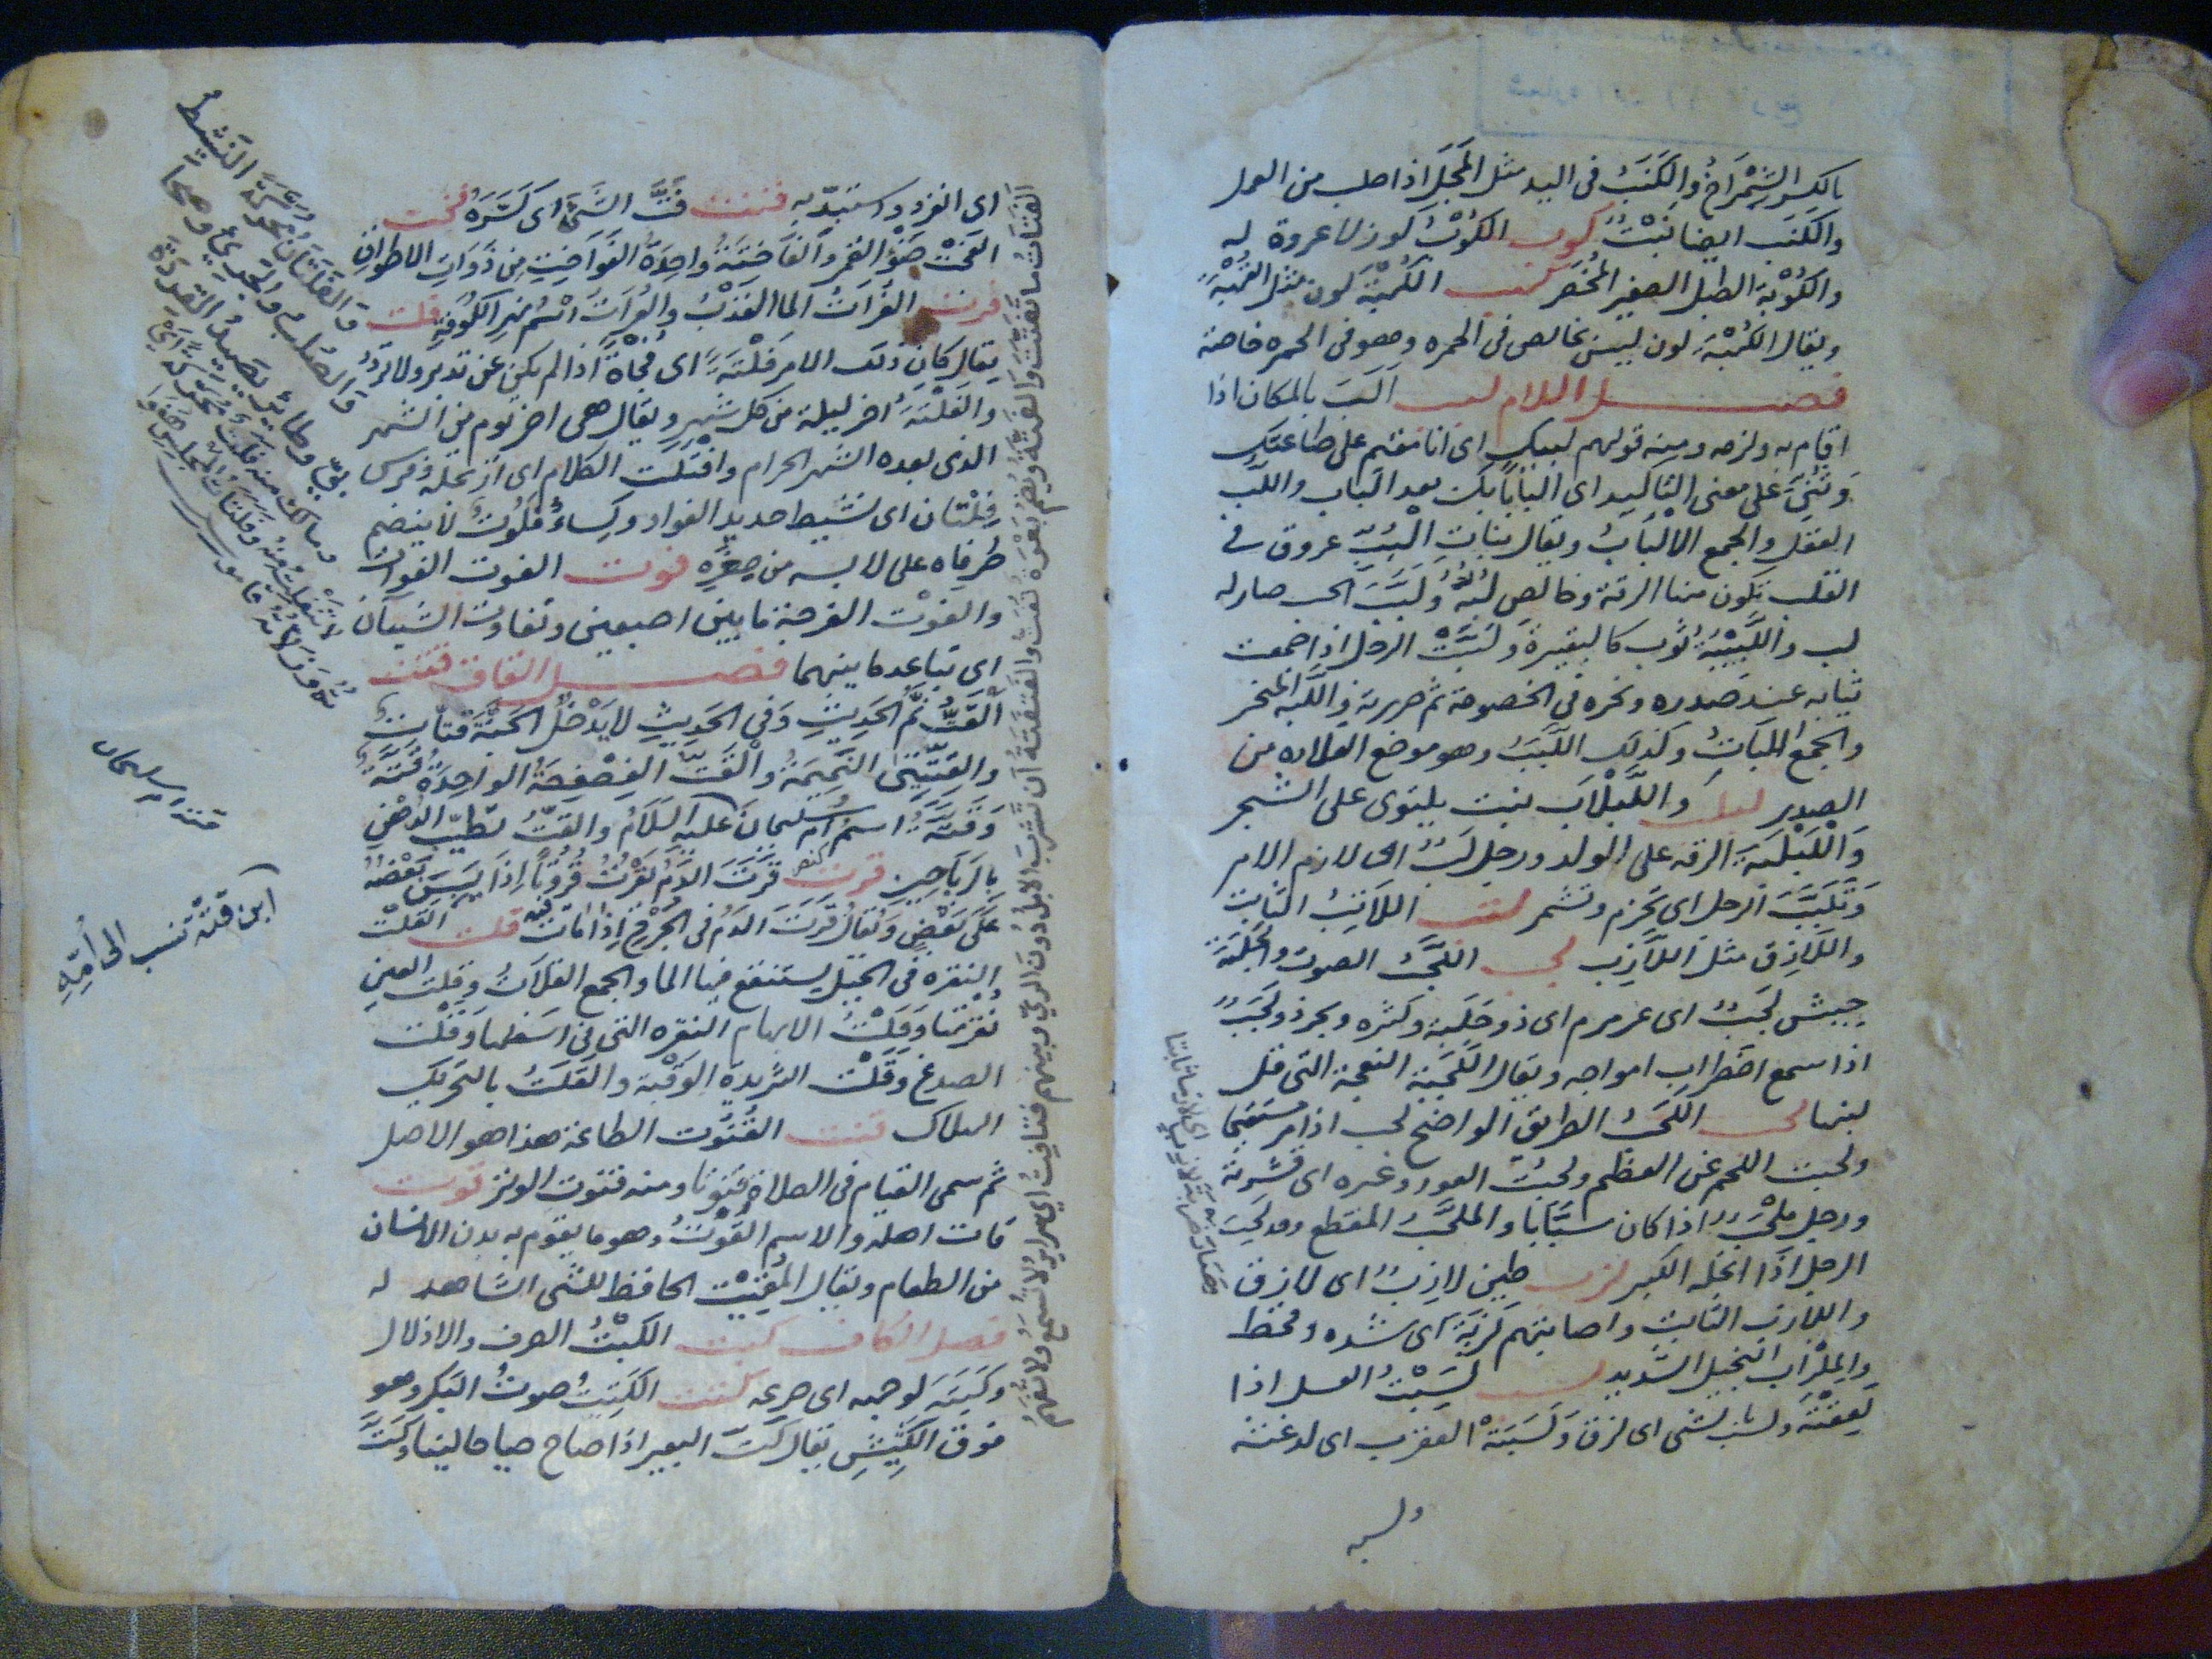 بالكسر الشمراخ والكنب في اليد مثل المجل اذا صلب من العمل
والكنب ايضا نبت كوب الكوب كوز لا عروة له
والكوبة الطبل الصغير المخصر كهب الكهبة لون مثل القهبة
ويقال الكهبة لون ليس بخالص في الحمره وهو في الحمره خاصة
فصل اللام لبب الب بالمكان اذا
اقام به ولزمه ومنه قولهم لبيك اى انا مقيم على طاعتك
وثني على معنى التاكيد اى البابا بك بعد الباب واللب
العقل والجمع الالباب ويقال بنات البب عروق في
القلب تكون منها الرقة وخالص لب ولبب الحب صار له
لب واللبيبة ثوب كالبقيرة ولببت الرجل اذا جمعت
ثيابه عند صدره ونحره في الخصومة ثم جررته واللبة المنحر
والجمع اللبات وكذلك اللبب وهو موضع القلاده من
الصدر لبلب واللبلاب نبت يلتوى على الشجر
واللبلبة الرقه على الولد ورجل لب اى لازم الامر
وتلبب الرجل اى تحزم وتشمر لتب اللاتب الثابت
واللازق مثل اللازب لجب اللجب الصوت والجلبة
جيش لجب اى عرمرم اى ذو جلبة وكثره وبحر ذو لجب
اذا سمع اضطراب امواجه ويقال اللجبة النعجة التى قل
لبنها لحب اللحب الطريق الواضح لحب اذا مر مستقيما
ولحبت اللحم عن العظم ولحبت العود وغيره اى قشرته
ورجل ملحب اذا كان سبابا والملحب المقطع وقد لحب
الرجل اذا انحله الكبر لزب طين لازب اى لازق
واللازب الثابت واصابتهم لزبة اى شده وقحط
والملزاب البخيل الشديد لسب لسبت العسل اذا
لعقته ولسب بالشى اى لزق ولسبته العقرب اى لدغته
ولسبه
صار ضربة لازب اى لازما ثابتا
اى انفرد واستبد به فتت فت الشئ اى كسره فخت
الفخت ضؤ القمر والفاختة واحدة الفواخت من ذوات الاطواق
فرت الفرات الما العذب والفرات اسم نهر الكوفة فلت
يقال كان ذلك الامر فلتة اى فجاة اذا لم يكن عن تدبر ولا تردد
والفلتة اخر ليلة من كل شهر ويقال هى اخر يوم من الشهر
الذى بعده الشهر الحرام وافتلت الكلام اى ارتجله وفرس
فلتان اى نشيط حديد الفواد وكساء فلوت لا ينضم
طرفاه على لابسه من صغره فوت الفوت الفوات
والفوت الفرجة ما بين اصبعين وتفاوت الشيآن
اى تباعد ما بينهما فصل القاف قتت
القت نم الحديث وفي الحديث لا يدخل الجنة قتات
والقتيتى النميمة والقت الفصفصة الواحدة قتة
وقتة اسم ام سليمان عليه السلام والقت تطيب الدهن
بالرياحين قرت قرت الدم يقرت قروتا اذا يبس بعضه
على بعض ويقال قرت الدم في الجرح اذا مات فيه قلت القلت
النقره في الجبل يستنقع فيها الما والجمع القلات وقلت العين
نقرتها وقلت الابهام النقره التى في اسفلها وقلت
الصدغ وقلت الثريدة الوقبة والقلت بالتحريك
الهلاك قنت القنوت الطاعة هذا هو الاصل
ثم سمى القيام في الصلاة قنوتا ومنه قنوت الوتر قوت
قات اهله والاسم القوت وهو ما يقوم به بدن الانسان
من الطعام ويقال المقيت الحافظ للشى الشاهد له
فصل الكاف كبت الكبت الصرف والاذلال
وكبته لوجهه اى صرعه كتت الكتيت صوت البكر وهو
فوق الكشيش يقال كت البعير اذا صاح صياحا لينا وكت
والفلتان محركة النشيط
والصلب والجرى
وطائر يصيد القردة
قتة ام سليمان
ابن قتة نسب الى امه